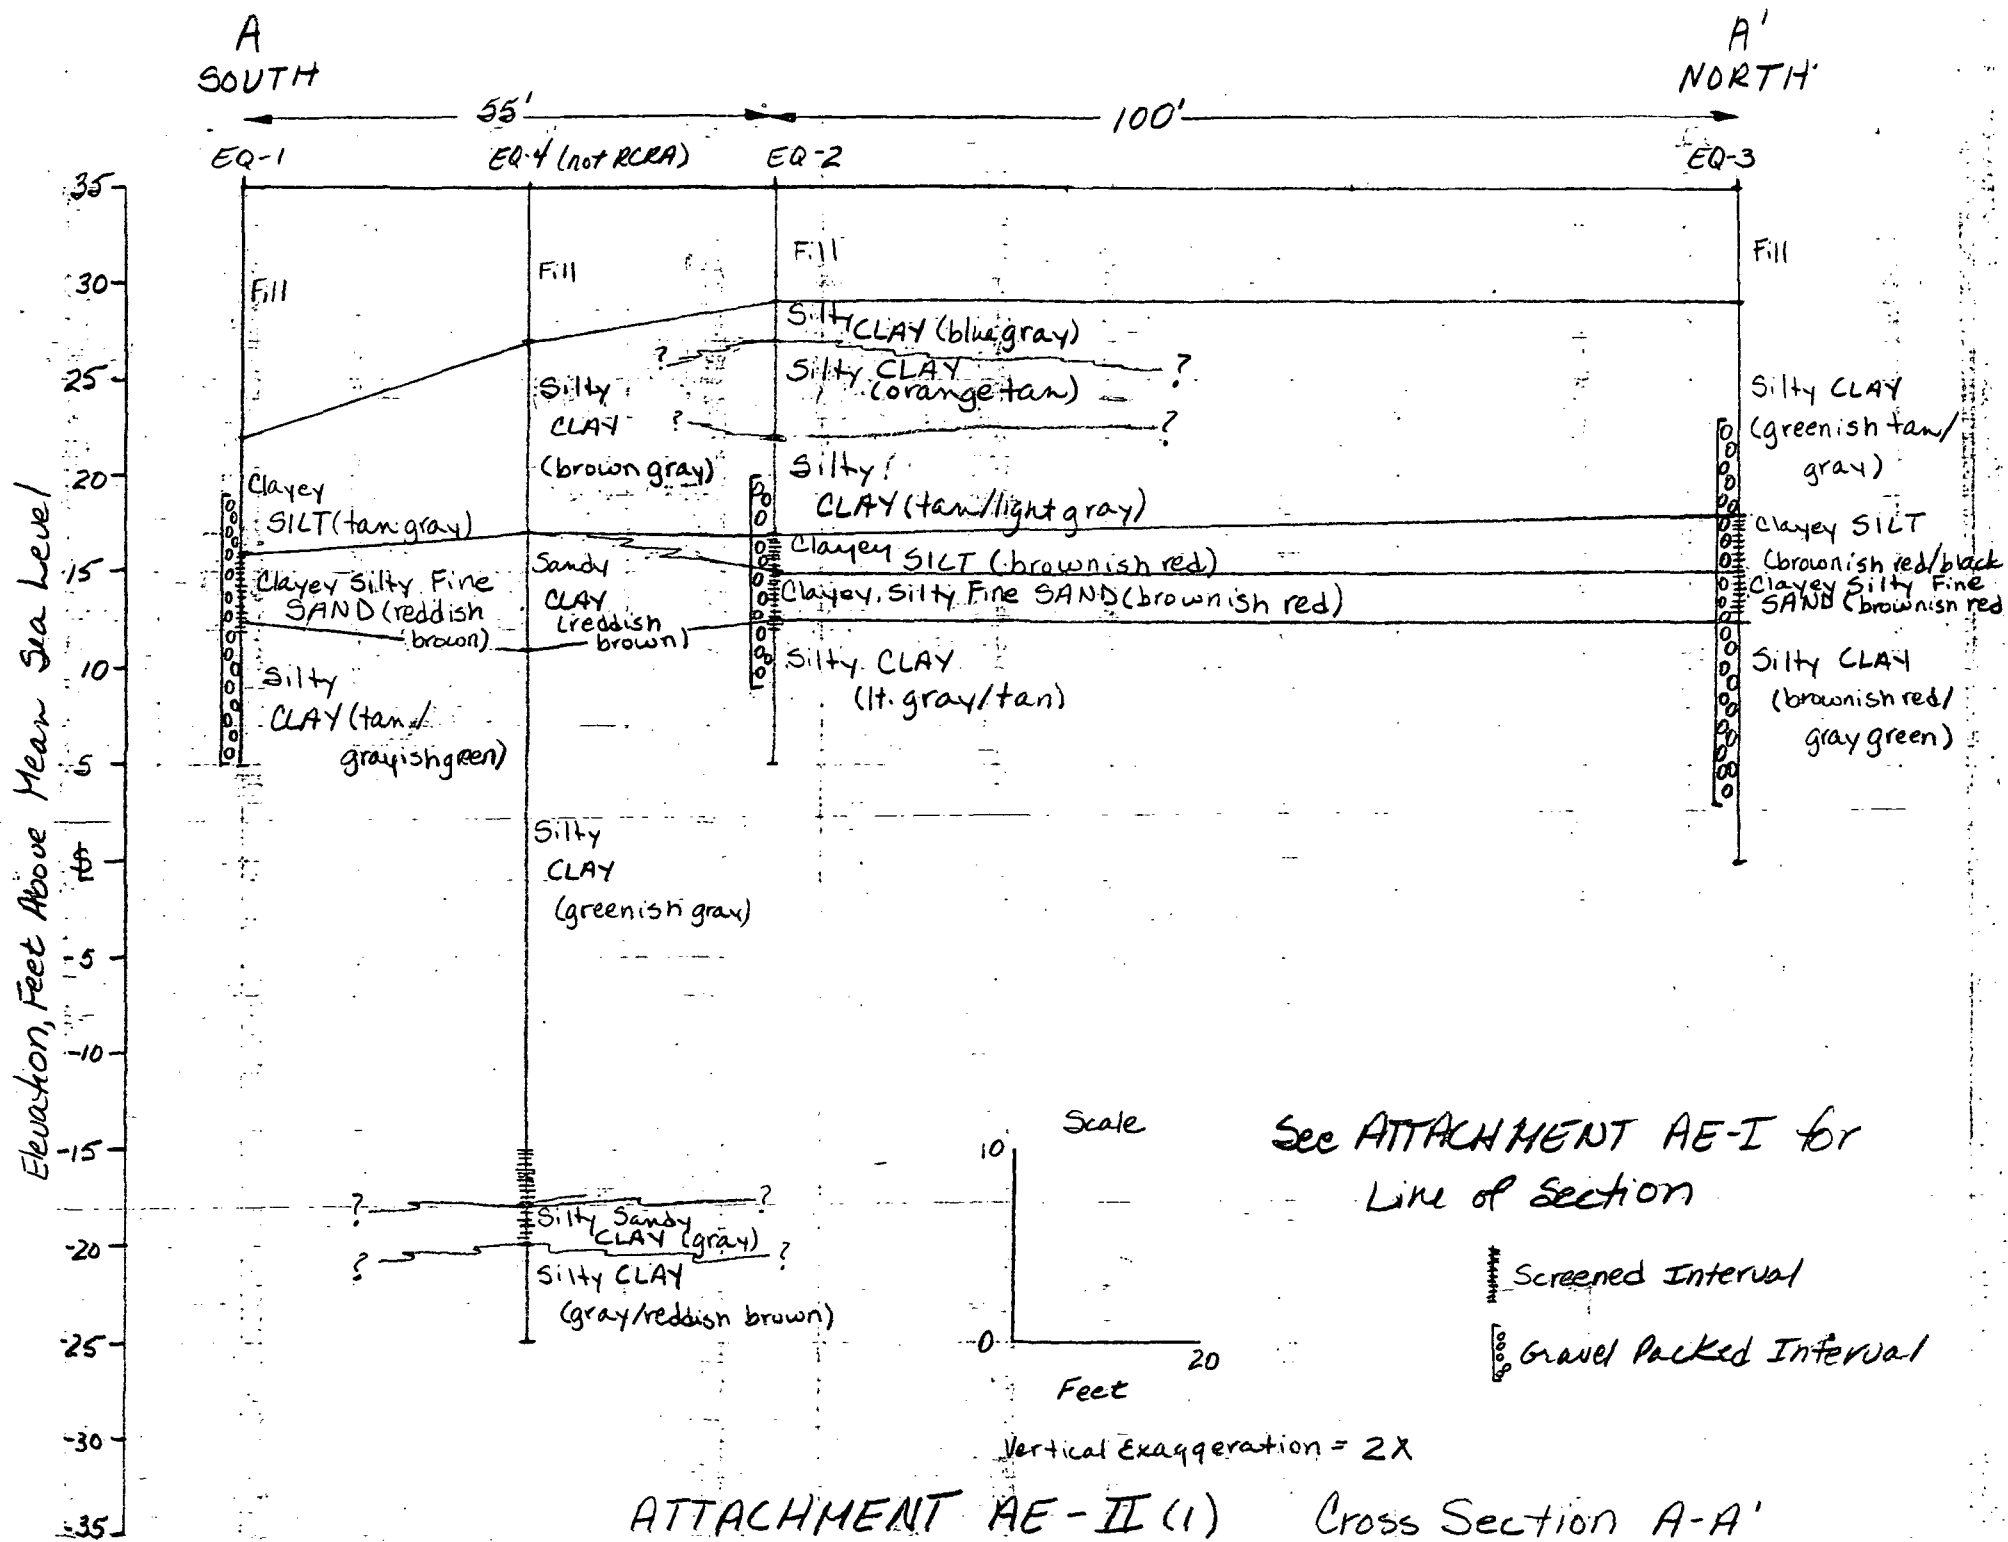 A
SOUTH
A'
NORTH
55'
100'
EQ-1
EQ-4 (not RCRA)
EQ-2
EQ-3
Elevation, Feet Above Mean Sea Level
35
30
25
20
15
10
5
0
-5
-10
-15
-20
-25
-30
-35
Fill
Clayey
SILT (tan gray)
Clayey Silty Fine
SAND (reddish
brown)
Silty
CLAY (tan/
grayish green)
Fill
Silty
CLAY
(brown gray)
Sandy
CLAY
(reddish
brown)
Silty
CLAY
(greenish gray)
?
?
Silty Sandy
CLAY (gray)
?
?
Silty CLAY
(gray/reddish brown)
Fill
Silty CLAY (blue gray)
?
?
Silty CLAY
(orange tan)
?
?
Silty
CLAY (tan/light gray)
Clayey SILT (brownish red)
Clayey Silty Fine SAND (brownish red)
Silty CLAY
(lt. gray/tan)
Fill
Silty CLAY
(greenish tan/
gray)
Clayey SILT
(brownish red/black
Clayey Silty Fine
SAND (brownish red
Silty CLAY
(brownish red/
gray green)
Scale
10
0
20
Feet
Vertical Exaggeration = 2X
See ATTACHMENT AE-I for
Line of Section
Screened Interval
Gravel Packed Interval
ATTACHMENT AE-II (1) Cross Section A-A'